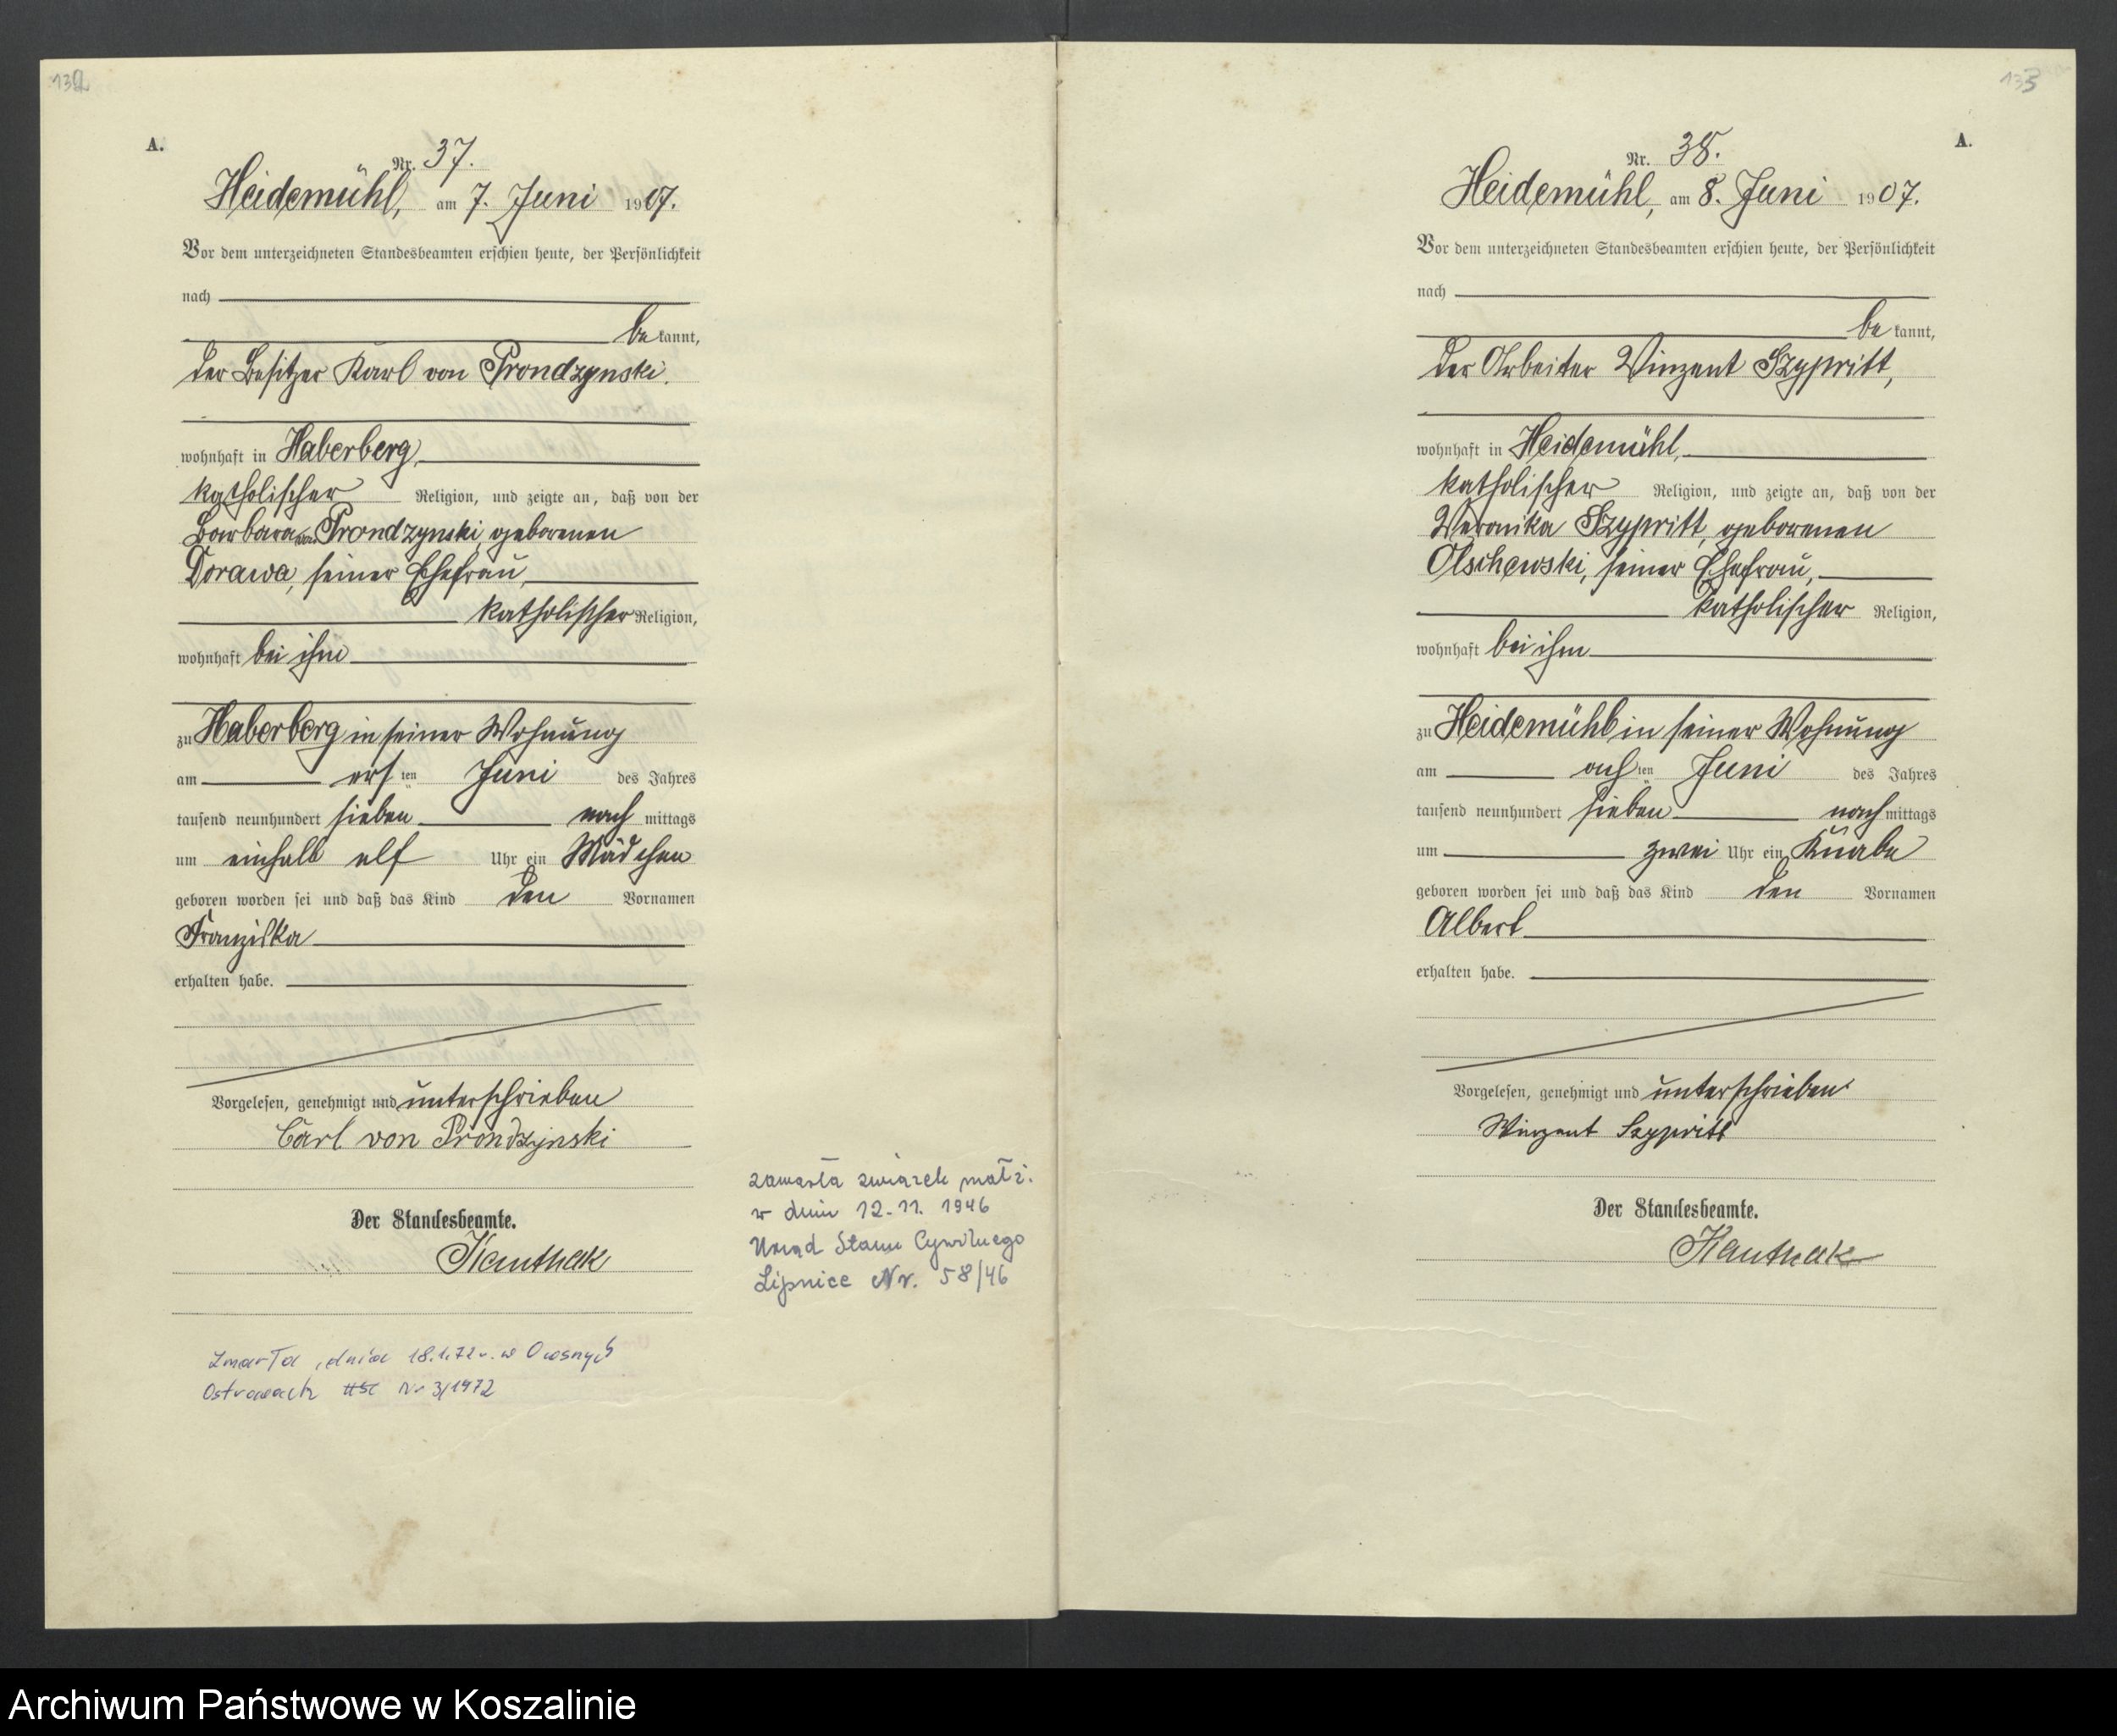 132
A.
Nr. 37.
Heidemühl, am 7. Juni 1907.
Vor dem unterzeichneten Standesbeamten erschien heute, der Persönlichkeit
nach
be kannt,
der Besitzer Karl von Prondzynski.
wohnhaft in Haberberg,
katholischer Religion, und zeigte an, daß von der
Barbara von Prondzynski, geborenen
Dorawa, seiner Ehefrau,
katholischer Religion,
wohnhaft bei ihm
zu Haberberg in seiner Wohnung
am ersten Juni des Jahres
tausend neunhundert sieben nach mittags
um einhalb elf Uhr ein Mädchen
geboren worden sei und daß das Kind den Vornamen
Franziska
erhalten habe.
Vorgelesen, genehmigt und unterschrieben
Carl von Prondzynski
Der Standesbeamte.
zawarła związek małż.
w dniu 12.11. 1946
Urząd Stanu Cywilnego
Lipnice Nr. 58/46
Zmarła dnia 18.1.72 r. w Owsnych
Ostrowach USC Nr 3/1972
133
A.
Nr. 38.
Heidemühl, am 8. Juni 1907.
Vor dem unterzeichneten Standesbeamten erschien heute, der Persönlichkeit
nach
be kannt,
der Arbeiter Vinzent Szypritt,
wohnhaft in Heidemühl,
katholischer Religion, und zeigte an, daß von der
Veronika Szypritt, geborenen
Olschewski, seiner Ehefrau,
katholischer Religion,
wohnhaft bei ihm
zu Heidemühl in seiner Wohnung
am achten Juni des Jahres
tausend neunhundert sieben nach mittags
um zwei Uhr ein Knabe
geboren worden sei und daß das Kind den Vornamen
Albert
erhalten habe.
Vorgelesen, genehmigt und unterschrieben
Winzent Szypritt
Der Standesbeamte.
Archiwum Państwowe w Koszalinie